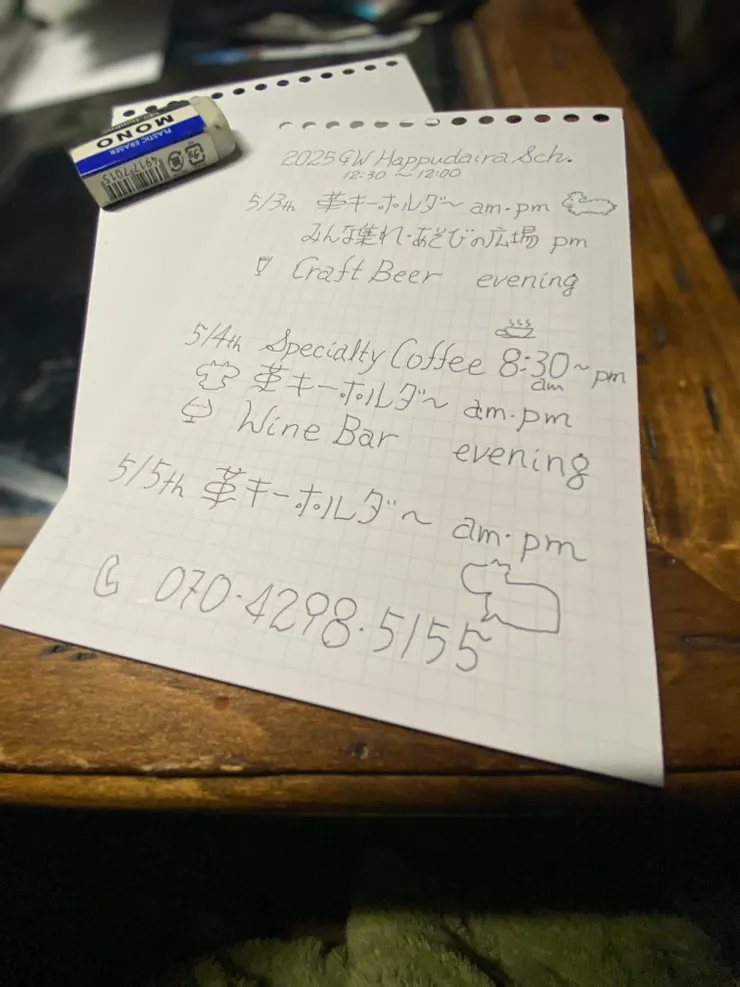 MONO
PLASTIC ERASER
4917701
2025 GW Happudaira Sch.
12:30 ~ 12:00
5/3th 革キーホルダ~ am.pm
みんな集れ・あそびの広場 pm
Craft Beer evening
5/4th Specialty Coffee 8:30~pm
am
革キーホルダ~ am.pm
Wine Bar evening
5/5th 革キーホルダ~ am.pm
070.4298.5155